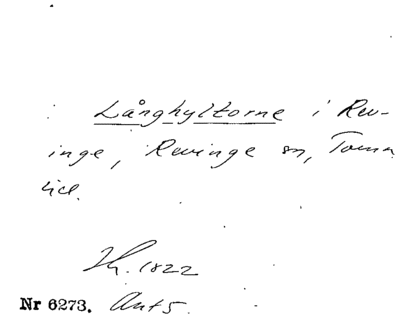 Långhyltorne i Rev-
inge, Revinge sn, Torna
hd.
Th. 1822
Nr 6273. Ant 5.